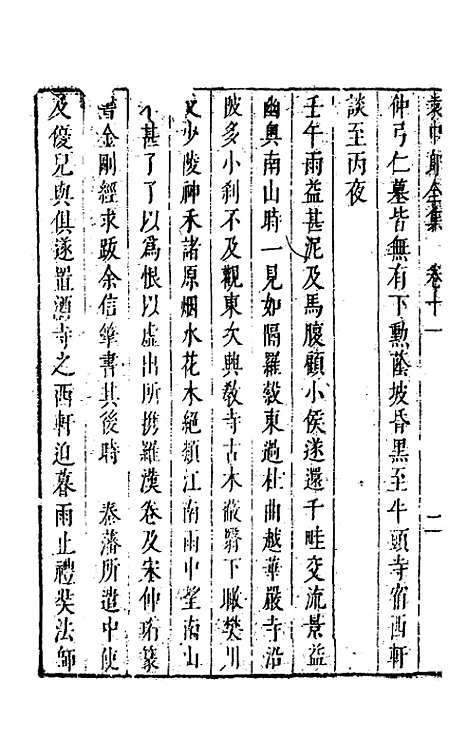 袁中郎全集 卷十一 二
仲弓仁墓皆無有下勲蔭坡昏黑至牛頭寺宿西軒
談至丙夜
壬午雨益甚泥及馬腹顧小僕遂還千畦交流景益
幽奥南山時一見如隔羅縠東過杜曲越華嚴寺沿
陂多小刹不及觀東次興敎寺古木蔽翳下瞰樊川
少陵神禾諸原烟水花木絕類江南雨中望南山
甚了了以爲恨以虛出所携羅漢卷及宋仲珩篆
書金剛經求跋余信筆書其後時 秦藩所遣中使
及優兒與俱遂置酒寺之西軒迫暮雨止禮奘法師